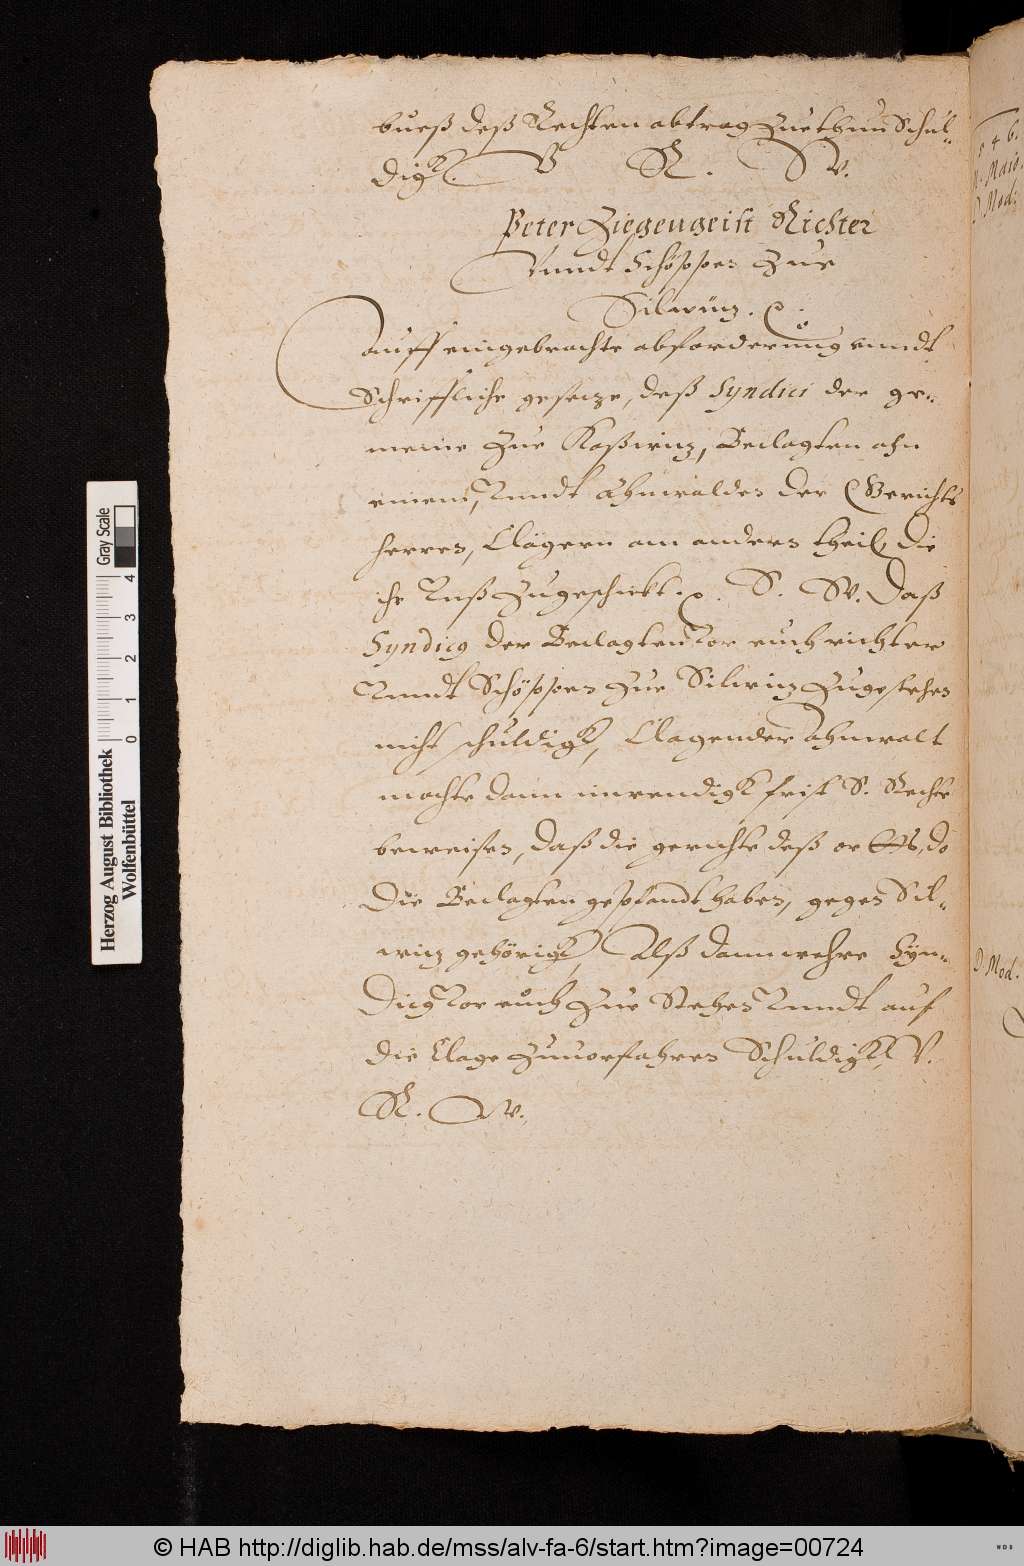 bueß deß Rechten abtrag zuethun Schul-
digk. V R. W.
Peter Ziegengeist Richter
Vnndt Schöppen zue
Silwiz. p.
Auff eingebrachte abforderung vnndt
Schrifftliche geseize, deß Syndici der ge-
meine zue Koßwiz, Beclagten ahn
einem, Vnndt Ahnwalden der Gerichts
herren, Clägern am andern theil, die
ihr Vnß zugeschickt. p. S. W. Daß
Syndicus der Beclagten Vor euch richter
Vnndt Schöppen zue Silwiz zugestehen
nicht schuldigk, Clagender Ahnwalt
machte dann inwendigk frist S. Rechte
beweisen, daß die gerichte deß orths, do
die Beclagten gepfandt haben, gegen Sil-
wiz gehörigk, Alß dann wehre Syn-
dicus Vor euch zue Stehen Vnndt auf
die Clage zuuorfahren Schuldigk, V.
R. W.
546.
Maio.
D. Mod:
D. Mod.
Herzog August Bibliothek
Wolfenbüttel
0 1 2 3 4
Gray Scale
© HAB http://diglib.hab.de/mss/alv-fa-6/start.htm?image=00724